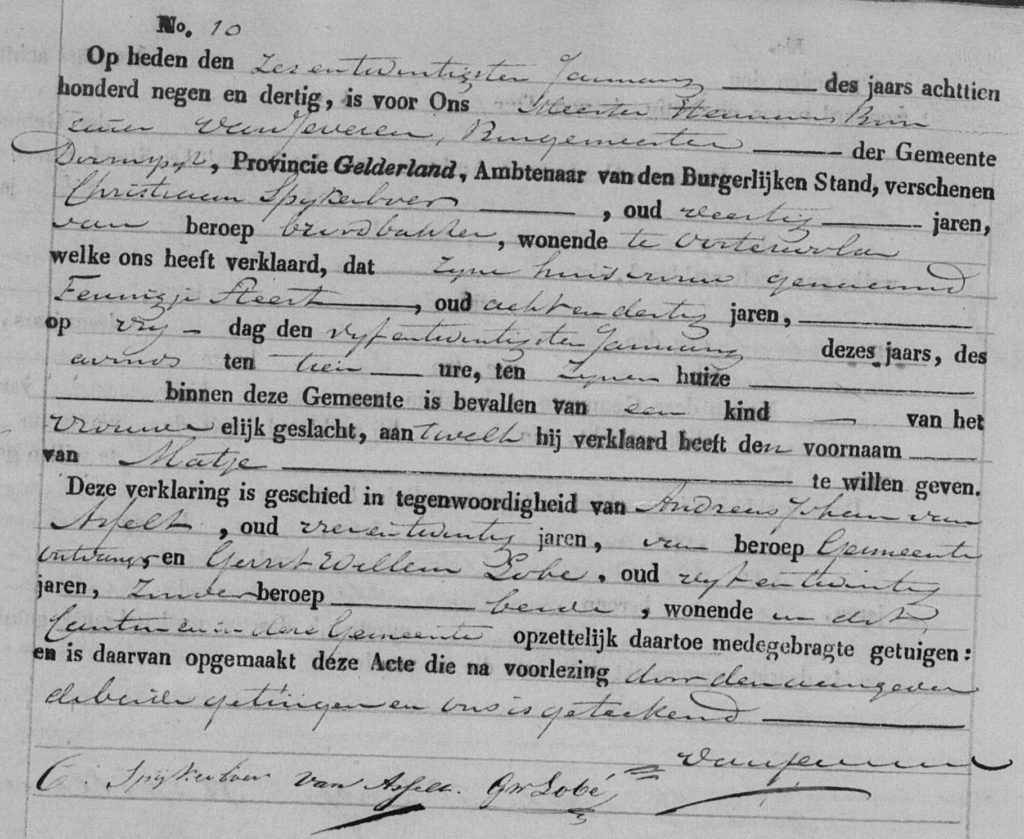 No. 10
Op heden den Zesentwintigsten January des jaars achttien
honderd negen en dertig, is voor Ons Meester Hermanus
van Jeveren, Burgemeester der Gemeente
Doornspyk, Provincie Gelderland, Ambtenaar van den Burgerlijken Stand, verschenen
Christiaan Spykerboer, oud veertig jaren,
van beroep broodbakker, wonende te Oosterwolde
welke ons heeft verklaard, dat zyne huisvrouw genaamd
Fennigje Steert, oud achtendertig jaren,
op Vry dag den vyfentwintigsten January dezes jaars, des
avonds ten tien ure, ten zynen huize
binnen deze Gemeente is bevallen van een kind van het
vrouwelijk geslacht, aan twelk hij verklaard heeft den voornaam
van Matje te willen geven.
Deze verklaring is geschied in tegenwoordigheid van Andreas Johan van
Asselt, oud jaren, van beroep Gemeente
ontvanger en Gerrit Willem Lobé, oud vyfentwintig
jaren, Zonder beroep beide, wonende in dit
Canton en in deze Gemeente opzettelijk daartoe medegebragte getuigen:
en is daarvan opgemaakt deze Acte die na voorlezing door den aangever
de beide getuigen en ons is geteekend
C. Spijkerboer van Asselt. GW Lobé